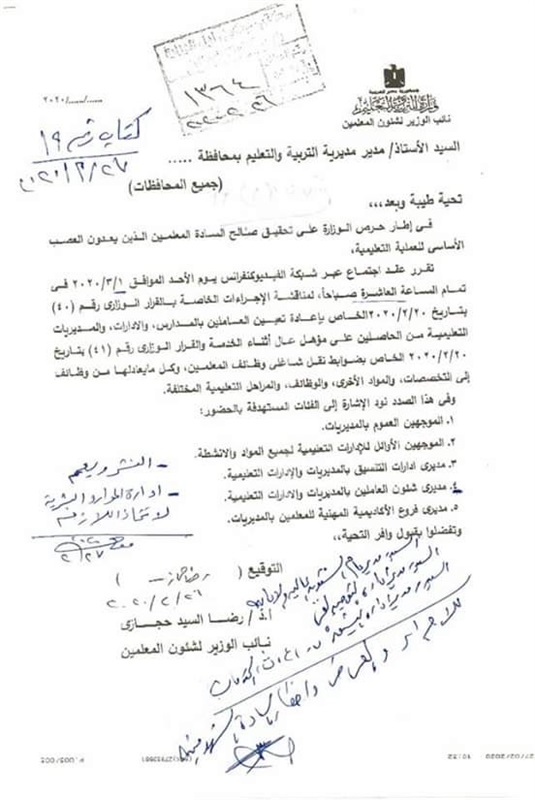 جمهورية مصر العربية
وزارة التربية والتعليم
نائب الوزير لشئون المعلمين
١٣٦٤
٢٠٢٠/.../...
كتاب رقم ١٩
٢٠٢٠/٢/٢٧
السيد الأستاذ/ مدير مديرية التربية والتعليم بمحافظة .....
(جميع المحافظات)
تحية طيبة وبعد،،،
فى إطار حرص الوزارة على تحقيق صالح السادة المعلمين الذين يعدون العصب
الأساسى للعملية التعليمية،
تقرر عقد اجتماع عبر شبكة الفيديوكنفرانس يوم الأحد الموافق ٢٠٢٠/٣/١ فى
تمام الساعة العاشرة صباحاً، لمناقشة الإجراءات الخاصة بالقرار الوزارى رقم (٤٠)
بتاريخ ٢٠٢٠/٢/٢٠ الخاص بإعادة تعيين العاملين بالمدارس، والادارات، والمديريات
التعليمية من الحاصلين على مؤهل عال أثناء الخدمة والقرار الوزارى رقم (٤١) بتاريخ
٢٠٢٠/٢/٢٠ الخاص بضوابط نقل شاغلى وظائف المعلمين، وكل مايعادلها من وظائف
إلى التخصصات، والمواد الأخرى، والوظائف، والمراحل التعليمية المختلفة.
وفى هذا الصدد نود الإشارة إلى الفئات المستهدفة بالحضور:
١. الموجهين العموم بالمديريات.
٢. الموجهين الأوائل للإدارات التعليمية لجميع المواد والانشطة.
٣. مديرى ادارات التنسيق بالمديريات والإدارات التعليمية.
٤. مديرى شئون العاملين بالمديريات والادارات التعليمية.
٥. مديرى فروع الأكاديمية المهنية للمعلمين بالمديريات.
وتفضلوا بقبول وافر التحية،،
- النشر ويعمم
- ادارة الموارد البشرية
لاتخاذ اللازم
التوقيع (رضا حجازى)
٢٠٢٠/٢/٢٦
أ.د/ رضا السيد حجازى
نائب الوزير لشئون المعلمين
P.005/005
10:52
27/02/2020